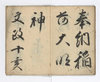 奉納稲
荷大明
神
文政十亥